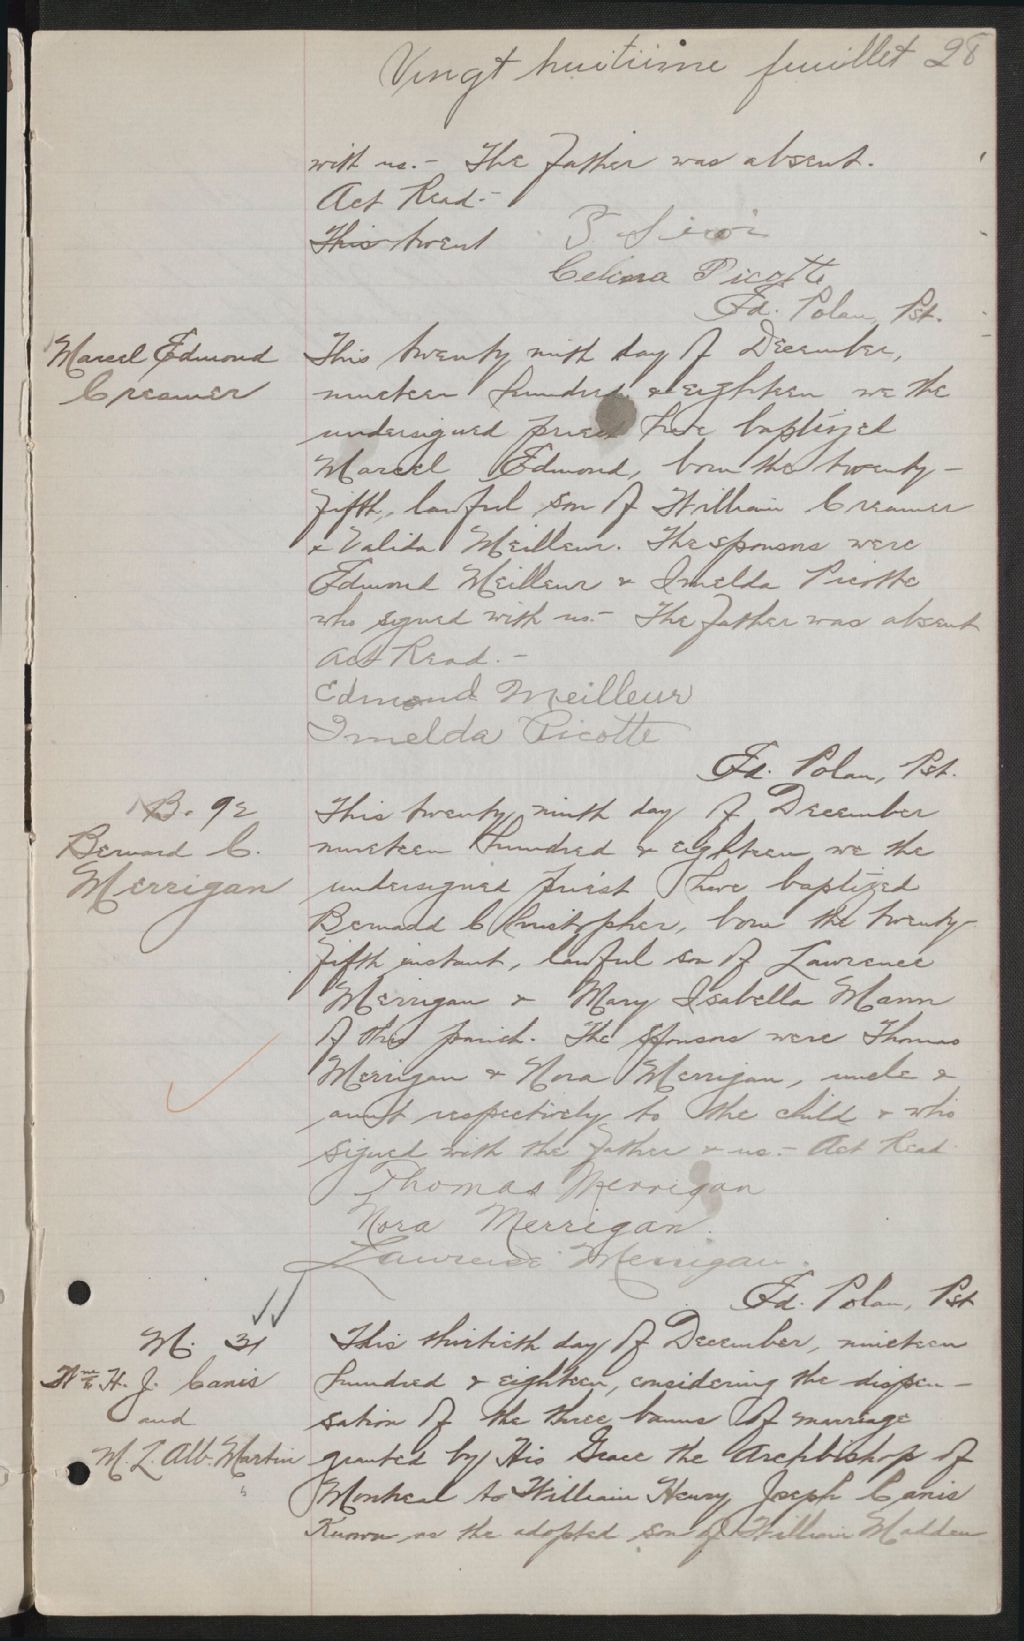 Vingt huitiime feuillet 28
with us. - The father was absent.
Act Read. -
This twent
Celina Picotte
Fd. Polan, Pst.
Marcel Edmond
Creamer
This twenty ninth day of December,
nineteen hundred & eighteen we the
undersigned priest have baptized
Marcel Edmond, born the twenty-
fifth, lawful son of William Creamer
& Valida Meilleur. The sponsors were
Edmond Meilleur & Imelda Picotte
who signed with us. - The father was absent
Act Read. -
Edmond Meilleur
Imelda Picotte
Fd. Polan, Pst.
B. 92
Bernard C.
Merrigan
This twenty ninth day of December
nineteen hundred & eighteen we the
undersigned priest have baptized
Bernadd Christopher, born the twenty-
fifth instant, lawful son of Lawrence
Merrigan & Mary Isabella Mann
of this parish. The sponsors were Thomas
Merrigan & Nora Merrigan, uncle &
aunt respectively to the child & who
signed with the father & us. - Act Read
Thomas Merrigan
Nora Merrigan.
Lawrence Merrigan.
Fd. Polan, Pst
M. 31
Wm H. J. Canis
and
M. L. Alb. Martin
This thirtieth day of December, nineteen
hundred & eighteen, considering the dispen-
sation of the three banns of marriage
granted by His Grace the Archbishop of
Montreal to William Henry Joseph Canis
Known as the adopted son of William Madden